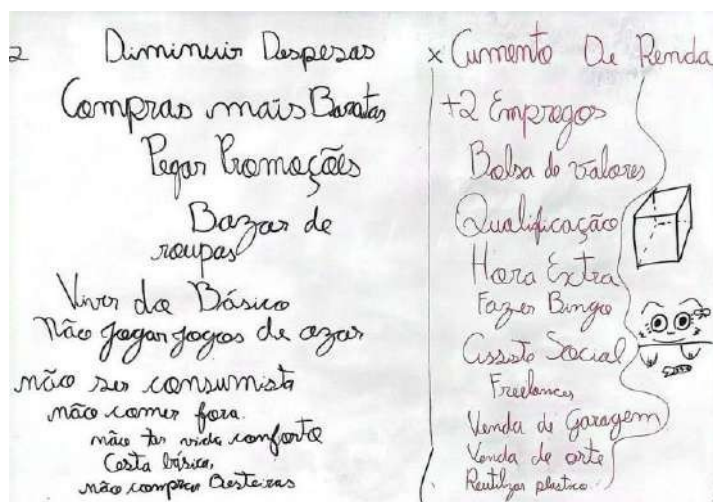 2 Diminuir Despesas x Aumento De Renda
Compras mais Baratas
Pegar Promoções
Bazar de
roupas
Viver do Básico
Não Jogar jogos de azar
não ser consumista
não comer fora.
não ter vida conforto
Cesta básica,
não comprar Besteiras
+2 Empregos
Bolsa de valores
Qualificação
Hora Extra
Fazer Bingo
Social
Freelances
Venda de Garagem
Venda de arte
Reutilizar plastico